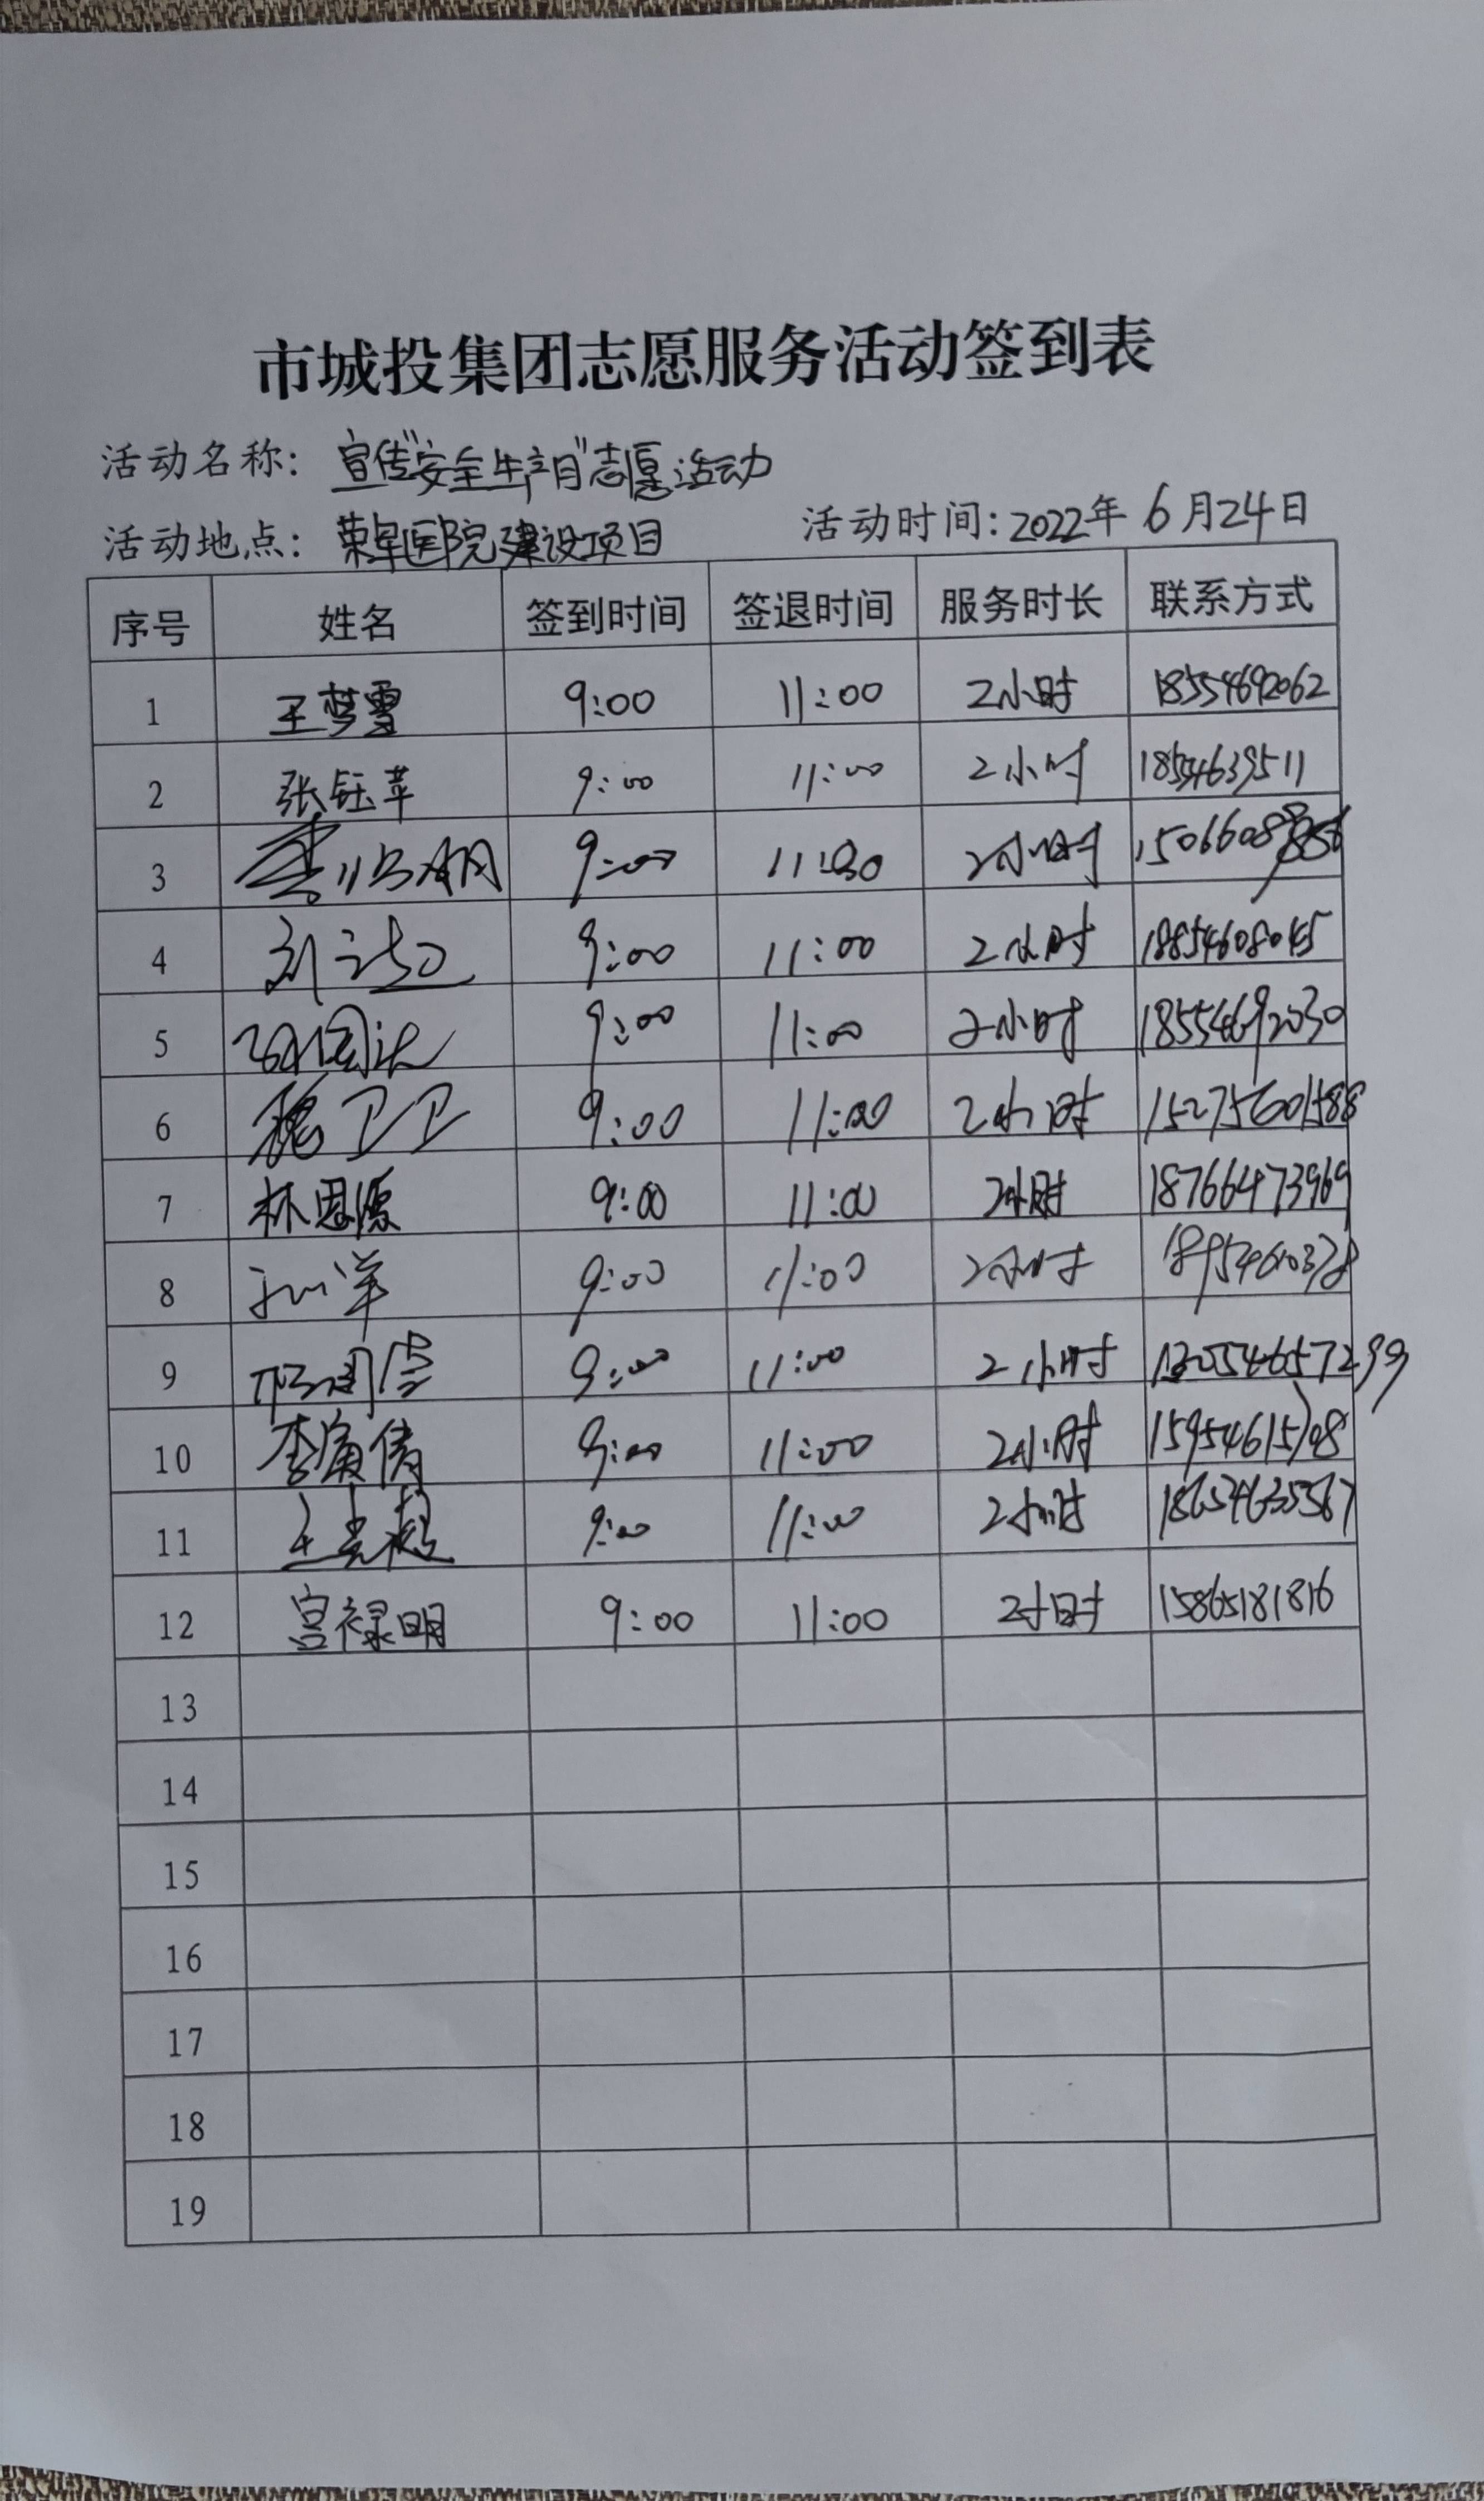 市城投集团志愿服务活动签到表
活动名称: 宣传"安全生产月"志愿活动
活动地点: 荣军医院建设项目 活动时间: 2022年 6月24日
序号 姓名 签到时间 签退时间 服务时长 联系方式
1 王梦雪 9:00 11:00 2小时 18554692062
2 张钰苹 9:00 11:00 2小时 18554639511
3 9:00 11:00 2小时
4 刘 9:00 11:00 2小时 18854608045
5 9:00 11:00 2小时 18554692030
6 魏卫卫 9:00 11:00 2小时 15275601588
7 林恩源 9:00 11:00 2小时 18766473969
8 9:00 11:00 2小时
9 9:00 11:00 2小时
10 李 倩 9:00 11:00 2小时 15954615108
11 王 9:00 11:00 2小时 18654635567
12 宫禄明 9:00 11:00 2小时 15865181816
13
14
15
16
17
18
19